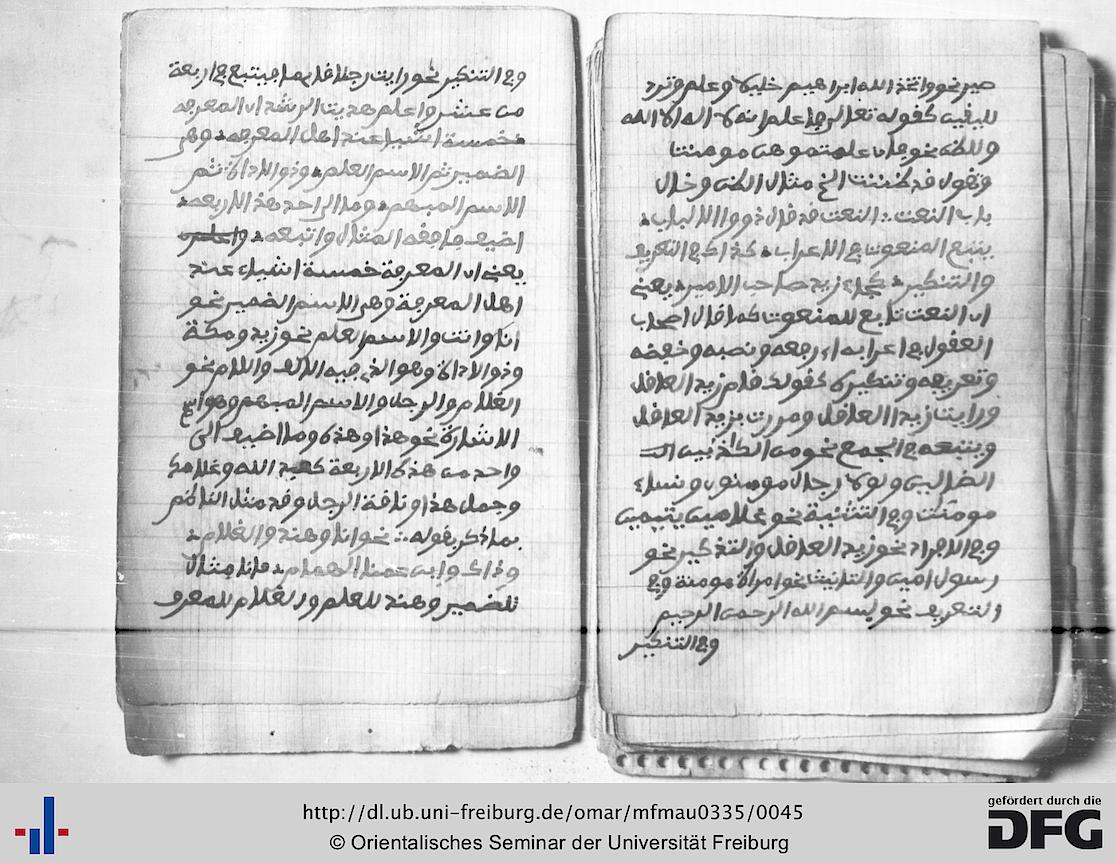 صير نحو واتخذ الله ابراهيم خليلا وعلم وترد
لليقين كقوله تعالى فاعلم انه لا اله الا الله
وللظن نحو فان علمتموهن مومنات
وتقول قد ظننت الخ مثال الظن وخال
باب النعت النعت قد قال ذووا الالباب
يتبع المنعوت في الاعراب كذاك في التعريف
والتنكير كجاء زيد صاحب الامير يعني
ان النعت تابع للمنعوت كما قال اصحاب
العقول في اعرابه اي رفعه ونصبه وخفضه
وتعريفه وتنكيره كقولك قام زيد العاقل
ورايت زيدا العاقل ومررت بزيد العاقل
ويتبعه في الجمع نحو
الضالين ولولا رجال مومنون ونساء
مومنات وفي التثنية نحو غلامين يتيمين
وفي الافراد نحو زيد العاقل والتذكير نحو
رسول امين والتانيث نحو امراة مومنة وفي
التعريف نحو بسم الله الرحمن الرحيم
وفي التنكير
وفي التنكير نحو رايت رجلا قايما فيتبع في اربعة
من عشر واعلم هديت الرشد ان المعرفه
خمسة اشيا عند اهل المعرفه وهي
الضمير ثم الاسم العلم وذو الاداة ثم
الاسم المبهم وما الى احد هذه الاربعه
اضيف فافقه المثال واتبعه
يعني ان المعرفة خمسة اشياء عند
اهل المعرفة وهي الاسم الضمير نحو
انا وانت والاسم العلم نحو زيد ومكة
وذو الاداة وهو الذي فيه الالف واللام نحو
الغلام والرجل والاسم المبهم وهو اسم
الاشارة نحو هذا وهذه وما اضيف الى
واحد من هذه الاربعة كعبد الله وغلامك
وجمل هذا وناقة الرجل وقد مثل الناظم
بما ذكر بقوله نحو انا وهند والغلام
وذاك وابن عمنا الهمام فانا مثال
للضمير وهند للعلم والغلام للمعرف
http://dl.ub.uni-freiburg.de/omar/mfmau0335/0045
© Orientalisches Seminar der Universität Freiburg
gefördert durch die
DFG